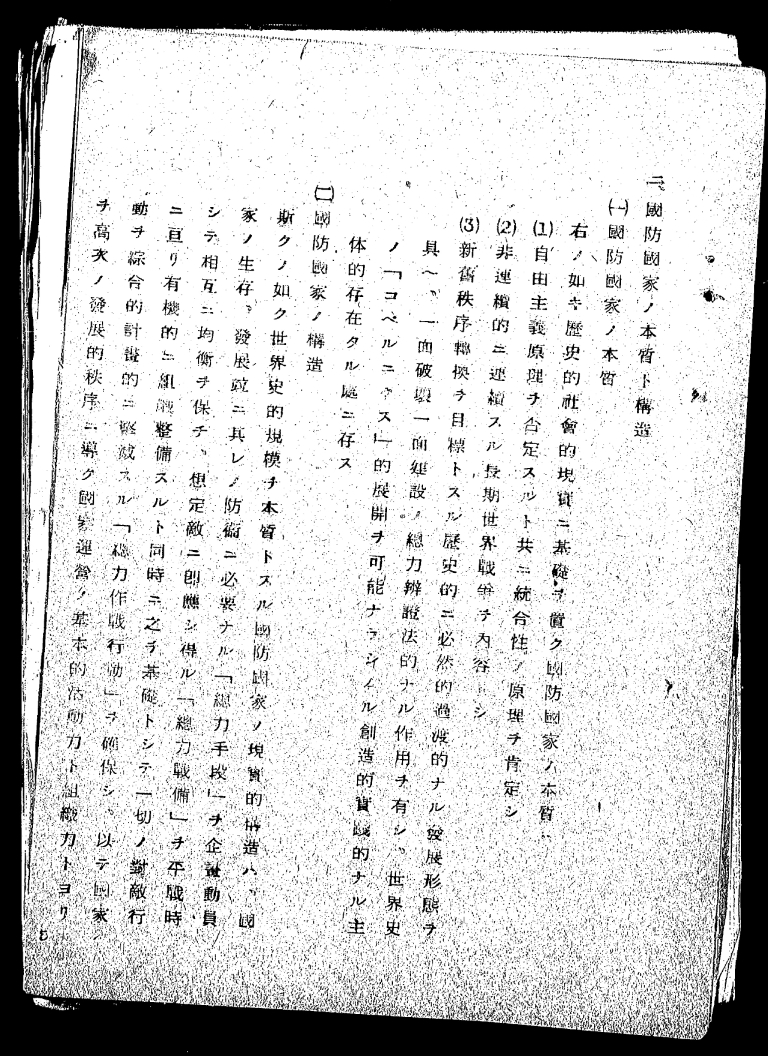 二、國防國家ノ本質ト構造
㈠國防國家ノ本質
右ノ如キ歷史的社會的現實ニ基礎ヲ置ク國防國家ノ本質ハ
(1)自由主義原理ヲ否定スルト共ニ統合性ノ原理ヲ肯定シ
(2)非連續的ニ連續スル長期世界戰爭ヲ內容トシ
(3)新舊秩序轉換ヲ目標トスル歷史的ニ必然的過渡的ナル發展形態ヲ
具ヘ、一面破壞一面建設ノ總力辨證法的ナル作用ヲ有シ、世界史
ノ「コペルニクス」的展開ヲ可能ナラシムル創造的實踐的ナル主
体的存在タル處ニ存ス
㈡國防國家ノ構造
斯クノ如ク世界史的規模ヲ本質トスル國防國家ノ現實的構造ハ、國
家ノ生存、發展竝ニ其レノ防衞ニ必要ナル「總力手段」ヲ企畫動員
シテ相互ニ均衡ヲ保チ、想定敵ニ卽應シ得ル「總力戰備」ヲ平戰時
ニ亘リ有機的ニ組織整備スルト同時ニ之ヲ基礎トシテ一切ノ對敵行
動ヲ綜合的計畫的ニ スル「總力作戰行動」ヲ確保シ、以テ國家
ヲ高次ノ發展的秩序ニ導ク國家運營ノ基本的活動力ト組織力トヨリ
5